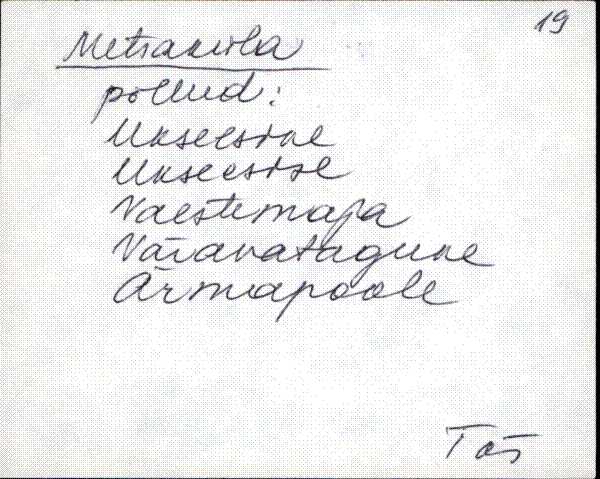 19
Metsaküla
põllud:
Ukseesine
Ukseesise
Vaestemaja
Väravatagune
Ärmapoole
Tõs